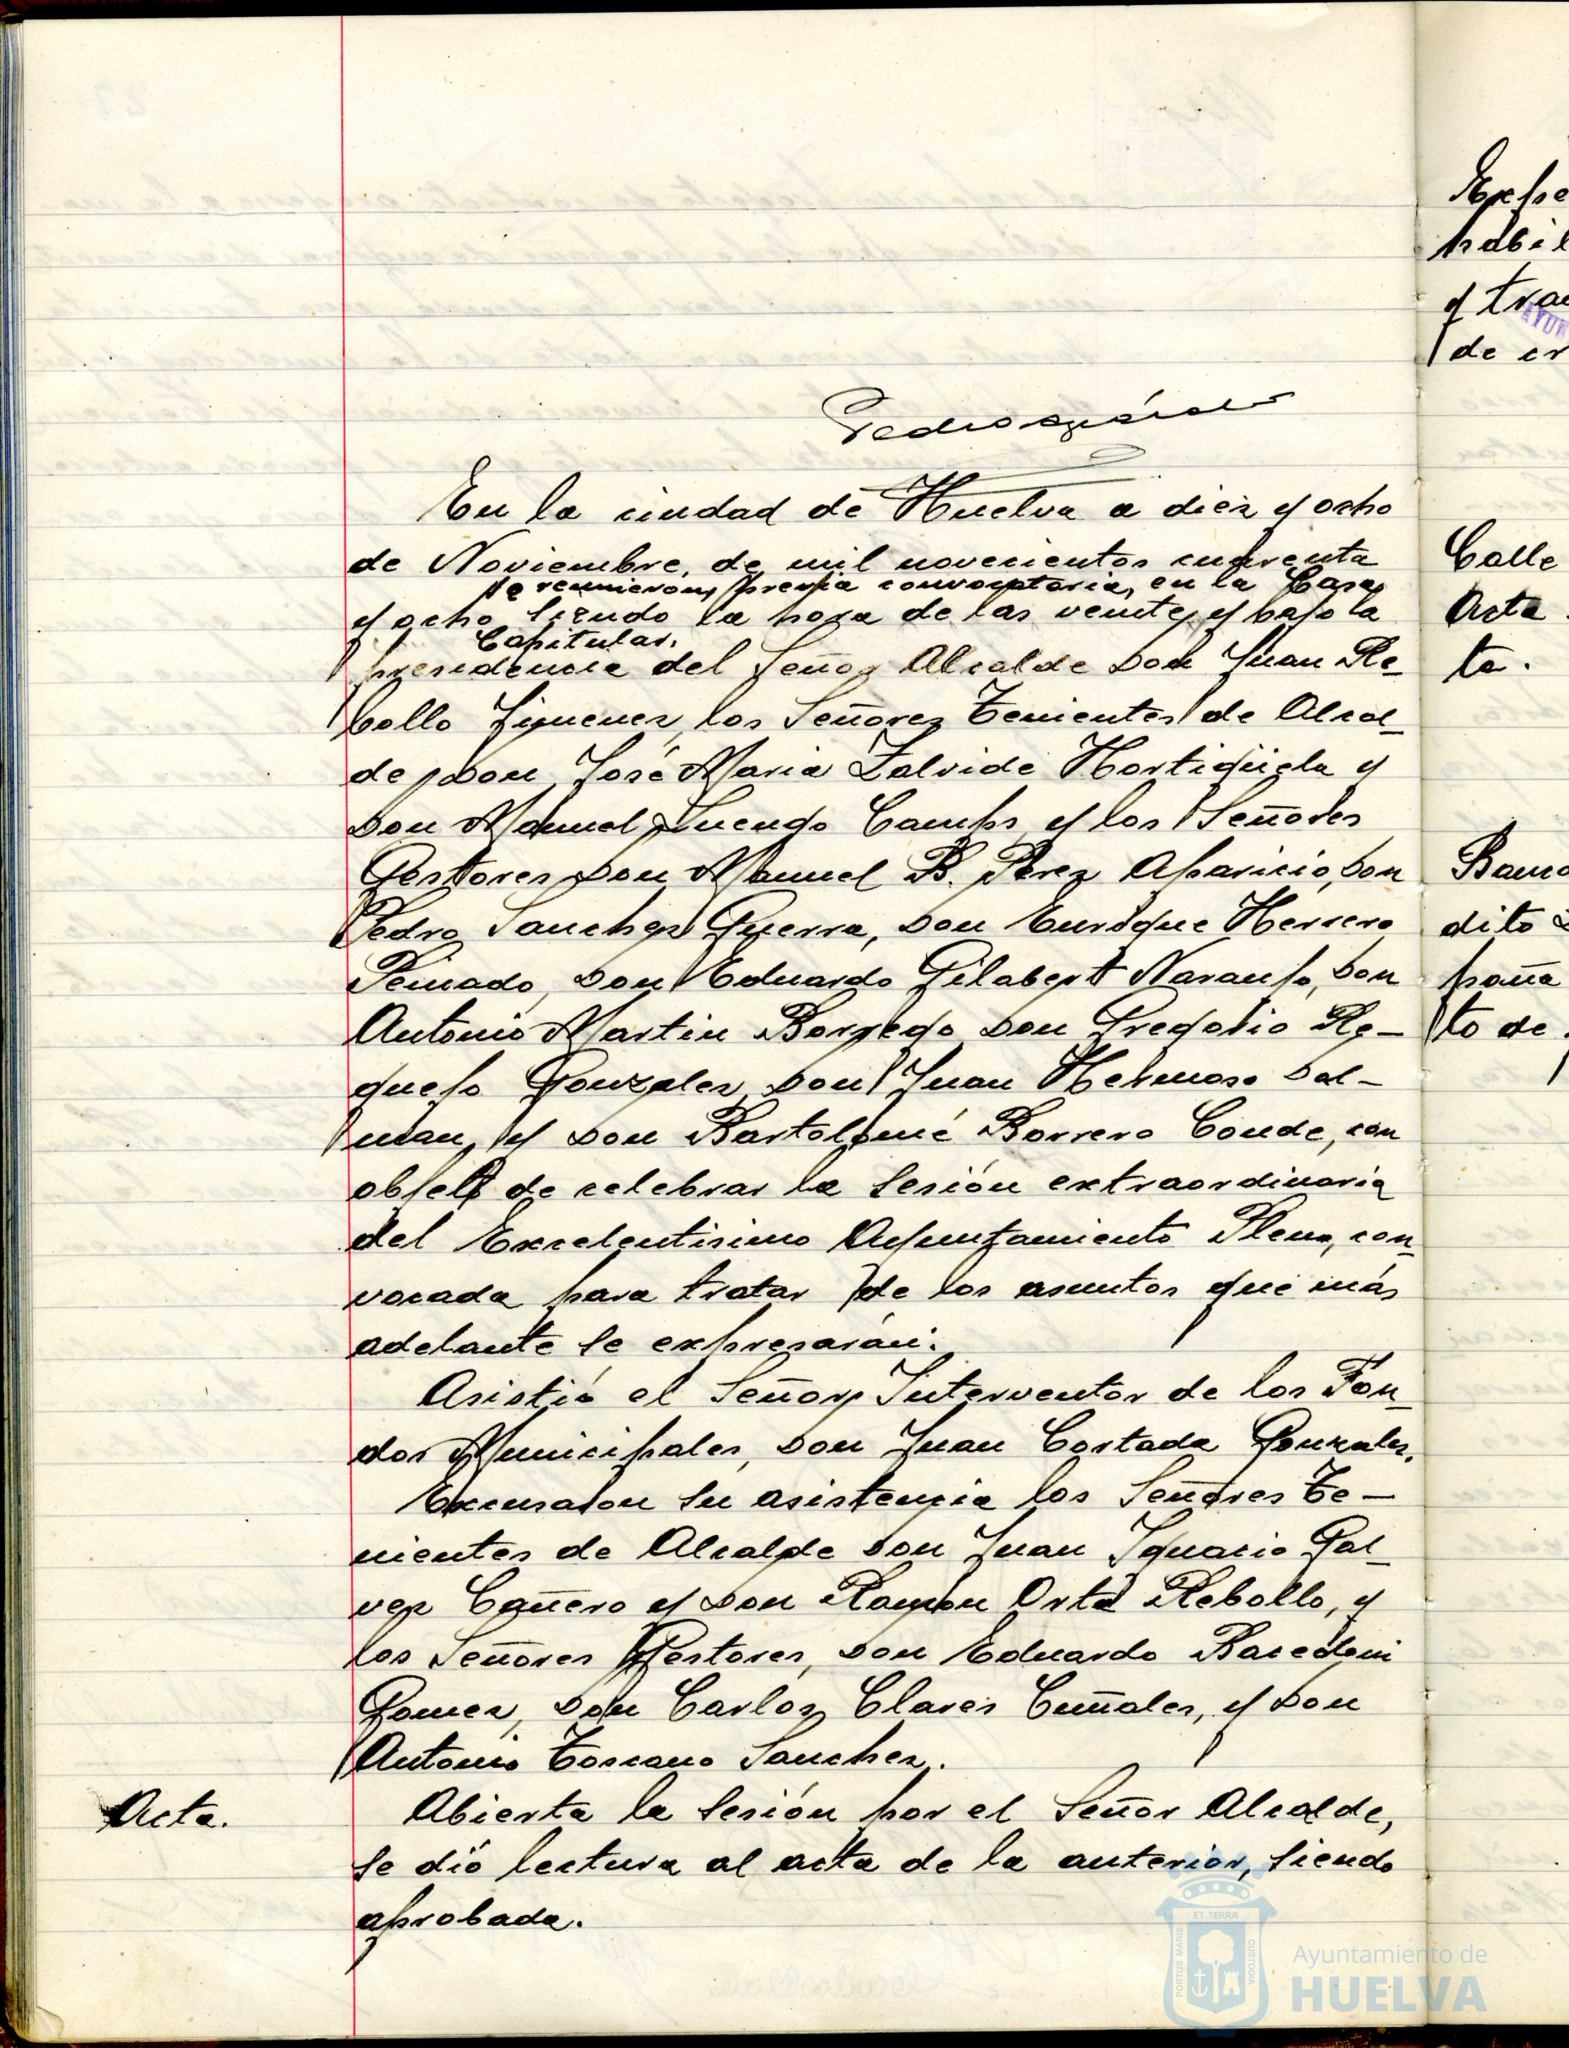 En la ciudad de Huelva a diez y ocho
de Noviembre, de mil novecientos cuarenta
se reunieron, previa convocatoria, en la Casa
y ocho siendo la hora de las veinte, y bajo la
Capitular.
presidencia del Señor Alcalde Don Juan Re-
bollo Jimenez, los Señores Tenientes de Alcal-
de, Don José Maria Zalvide Hortigüela y
Don Manuel Luengo Camps y los Señores
Gestores Don Manuel B. Perez Aparicio, Don
Pedro Sanchez Guerra, Don Enrique Herrero
Peinado, Don Eduardo Gilabert Naranjo, Don
Antonio Martin Borrego, Don Gregorio Re-
quejo Gonzalez, Don Juan Hermoso Dol-
man, y Don Bartolomé Borrero Conde, con
objeto de celebrar la sesión extraordinaria
del Excelentisimo Ayuntamiento Pleno, con-
vocada para tratar de los asuntos que más
adelante se expresarán.
Asistió el Señor Interventor de los Fon-
dos Municipales, Don Juan Cortada Gonzalez.
Excusaron su asistencia los Señores Te-
nientes de Alcalde Don Juan Ignacio Gal-
vez Cañero y Don Ramón Orta Rebollo, y
los Señores Gestores, Don Eduardo Bacedoni
Gomez, Don Carlos Clares Cuñales, y Don
Antonio Toscano Sanchez.
Acta.
Abierta la sesión por el Señor Alcalde,
se dió lectura al acta de la anterior, siendo
aprobada.
Expe
habil
y tra
de cr
Calle
Acta
to.
dito
paña
to de
ET TERRÆ
PORTUS MARIS
CUSTODIA
Ayuntamiento de
HUELVA